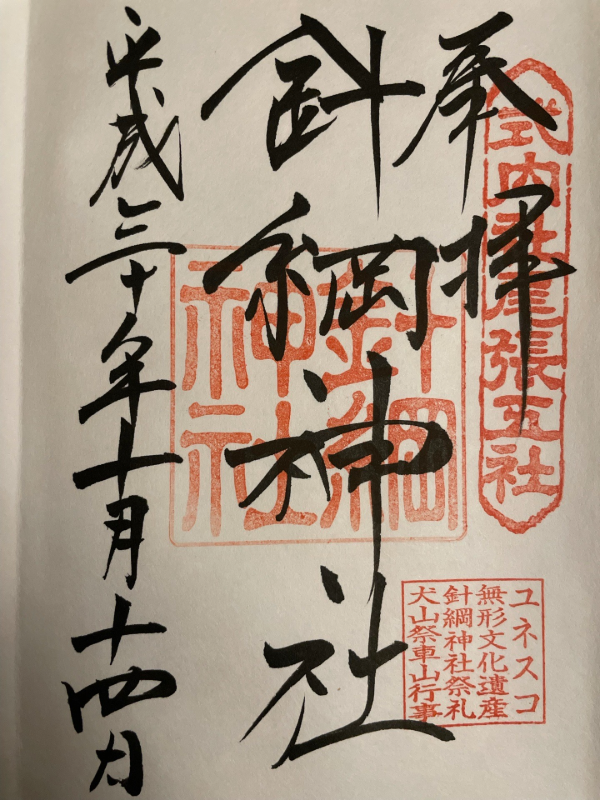 奉拝
式内社尾張五社
針綱神社
針綱
神社
ユネスコ
無形文化遺産
針綱神社祭礼
犬山祭車山行事
平成三十年十月十四日